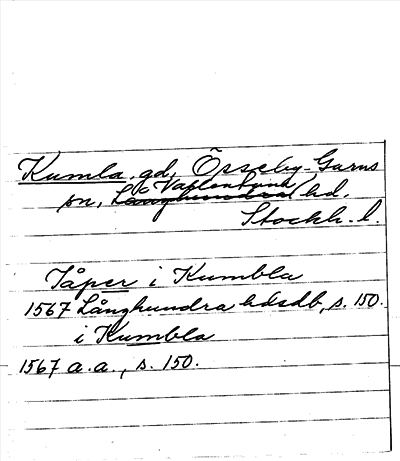 Kumla, gd, Össeby-Garns
sn, Långhundra Vallentuna hd.
Stockh. l.
Jåper i Kumbla
1567 Långhundra hdsdb, s. 150.
i Kumbla
1567 a. a., s. 150.